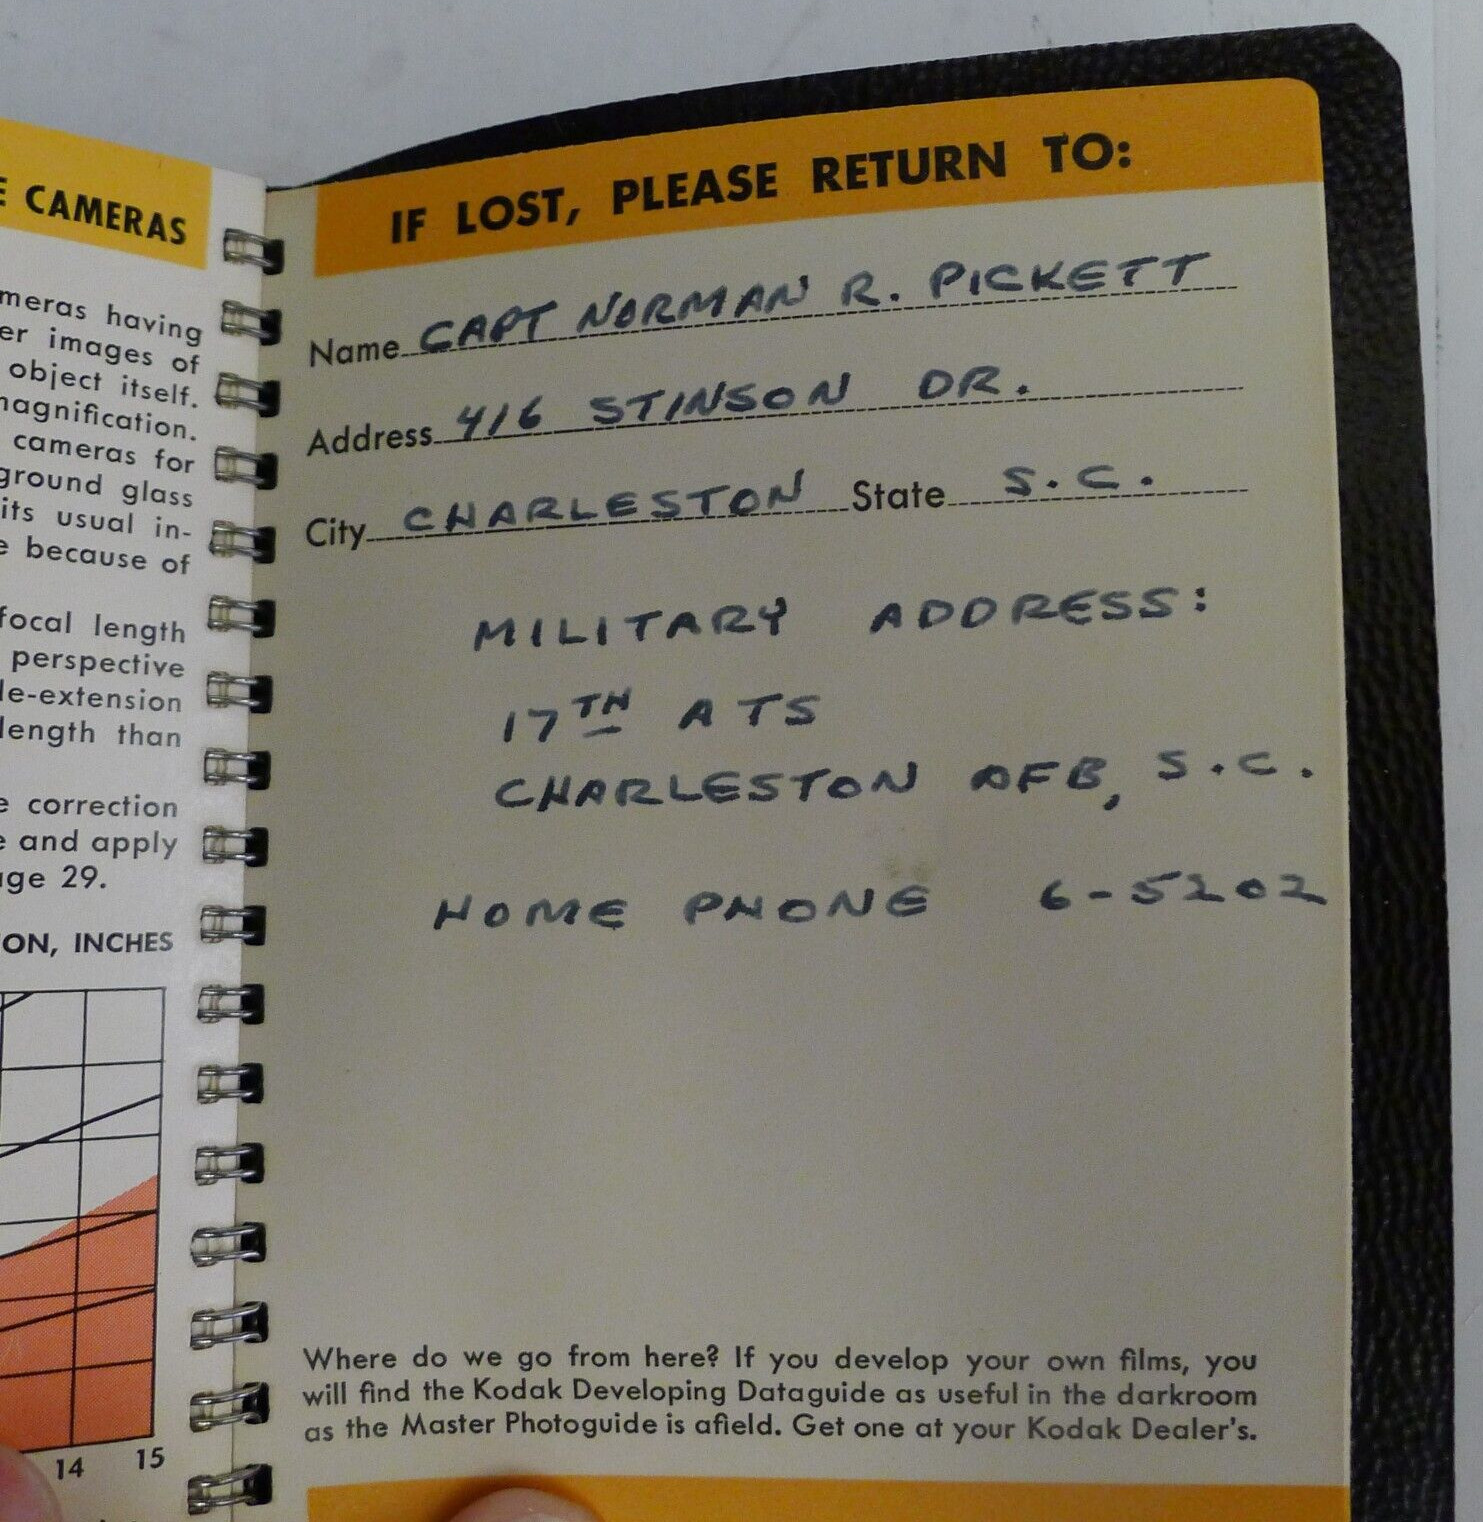 E CAMERAS
meras having
er images of
object itself.
magnification.
cameras for
ground glass
its usual in-
e because of
focal length
perspective
le-extension
length than
e correction
e and apply
age 29.
ON, INCHES
14 15
IF LOST, PLEASE RETURN TO:
Name CAPT NORMAN R. PICKETT
Address 416 STINSON DR.
City CHARLESTON State S.C.
MILITARY ADDRESS:
17TH ATS
CHARLESTON AFB, S.C.
HOME PHONE 6-5202
Where do we go from here? If you develop your own films, you
will find the Kodak Developing Dataguide as useful in the darkroom
as the Master Photoguide is afield. Get one at your Kodak Dealer's.